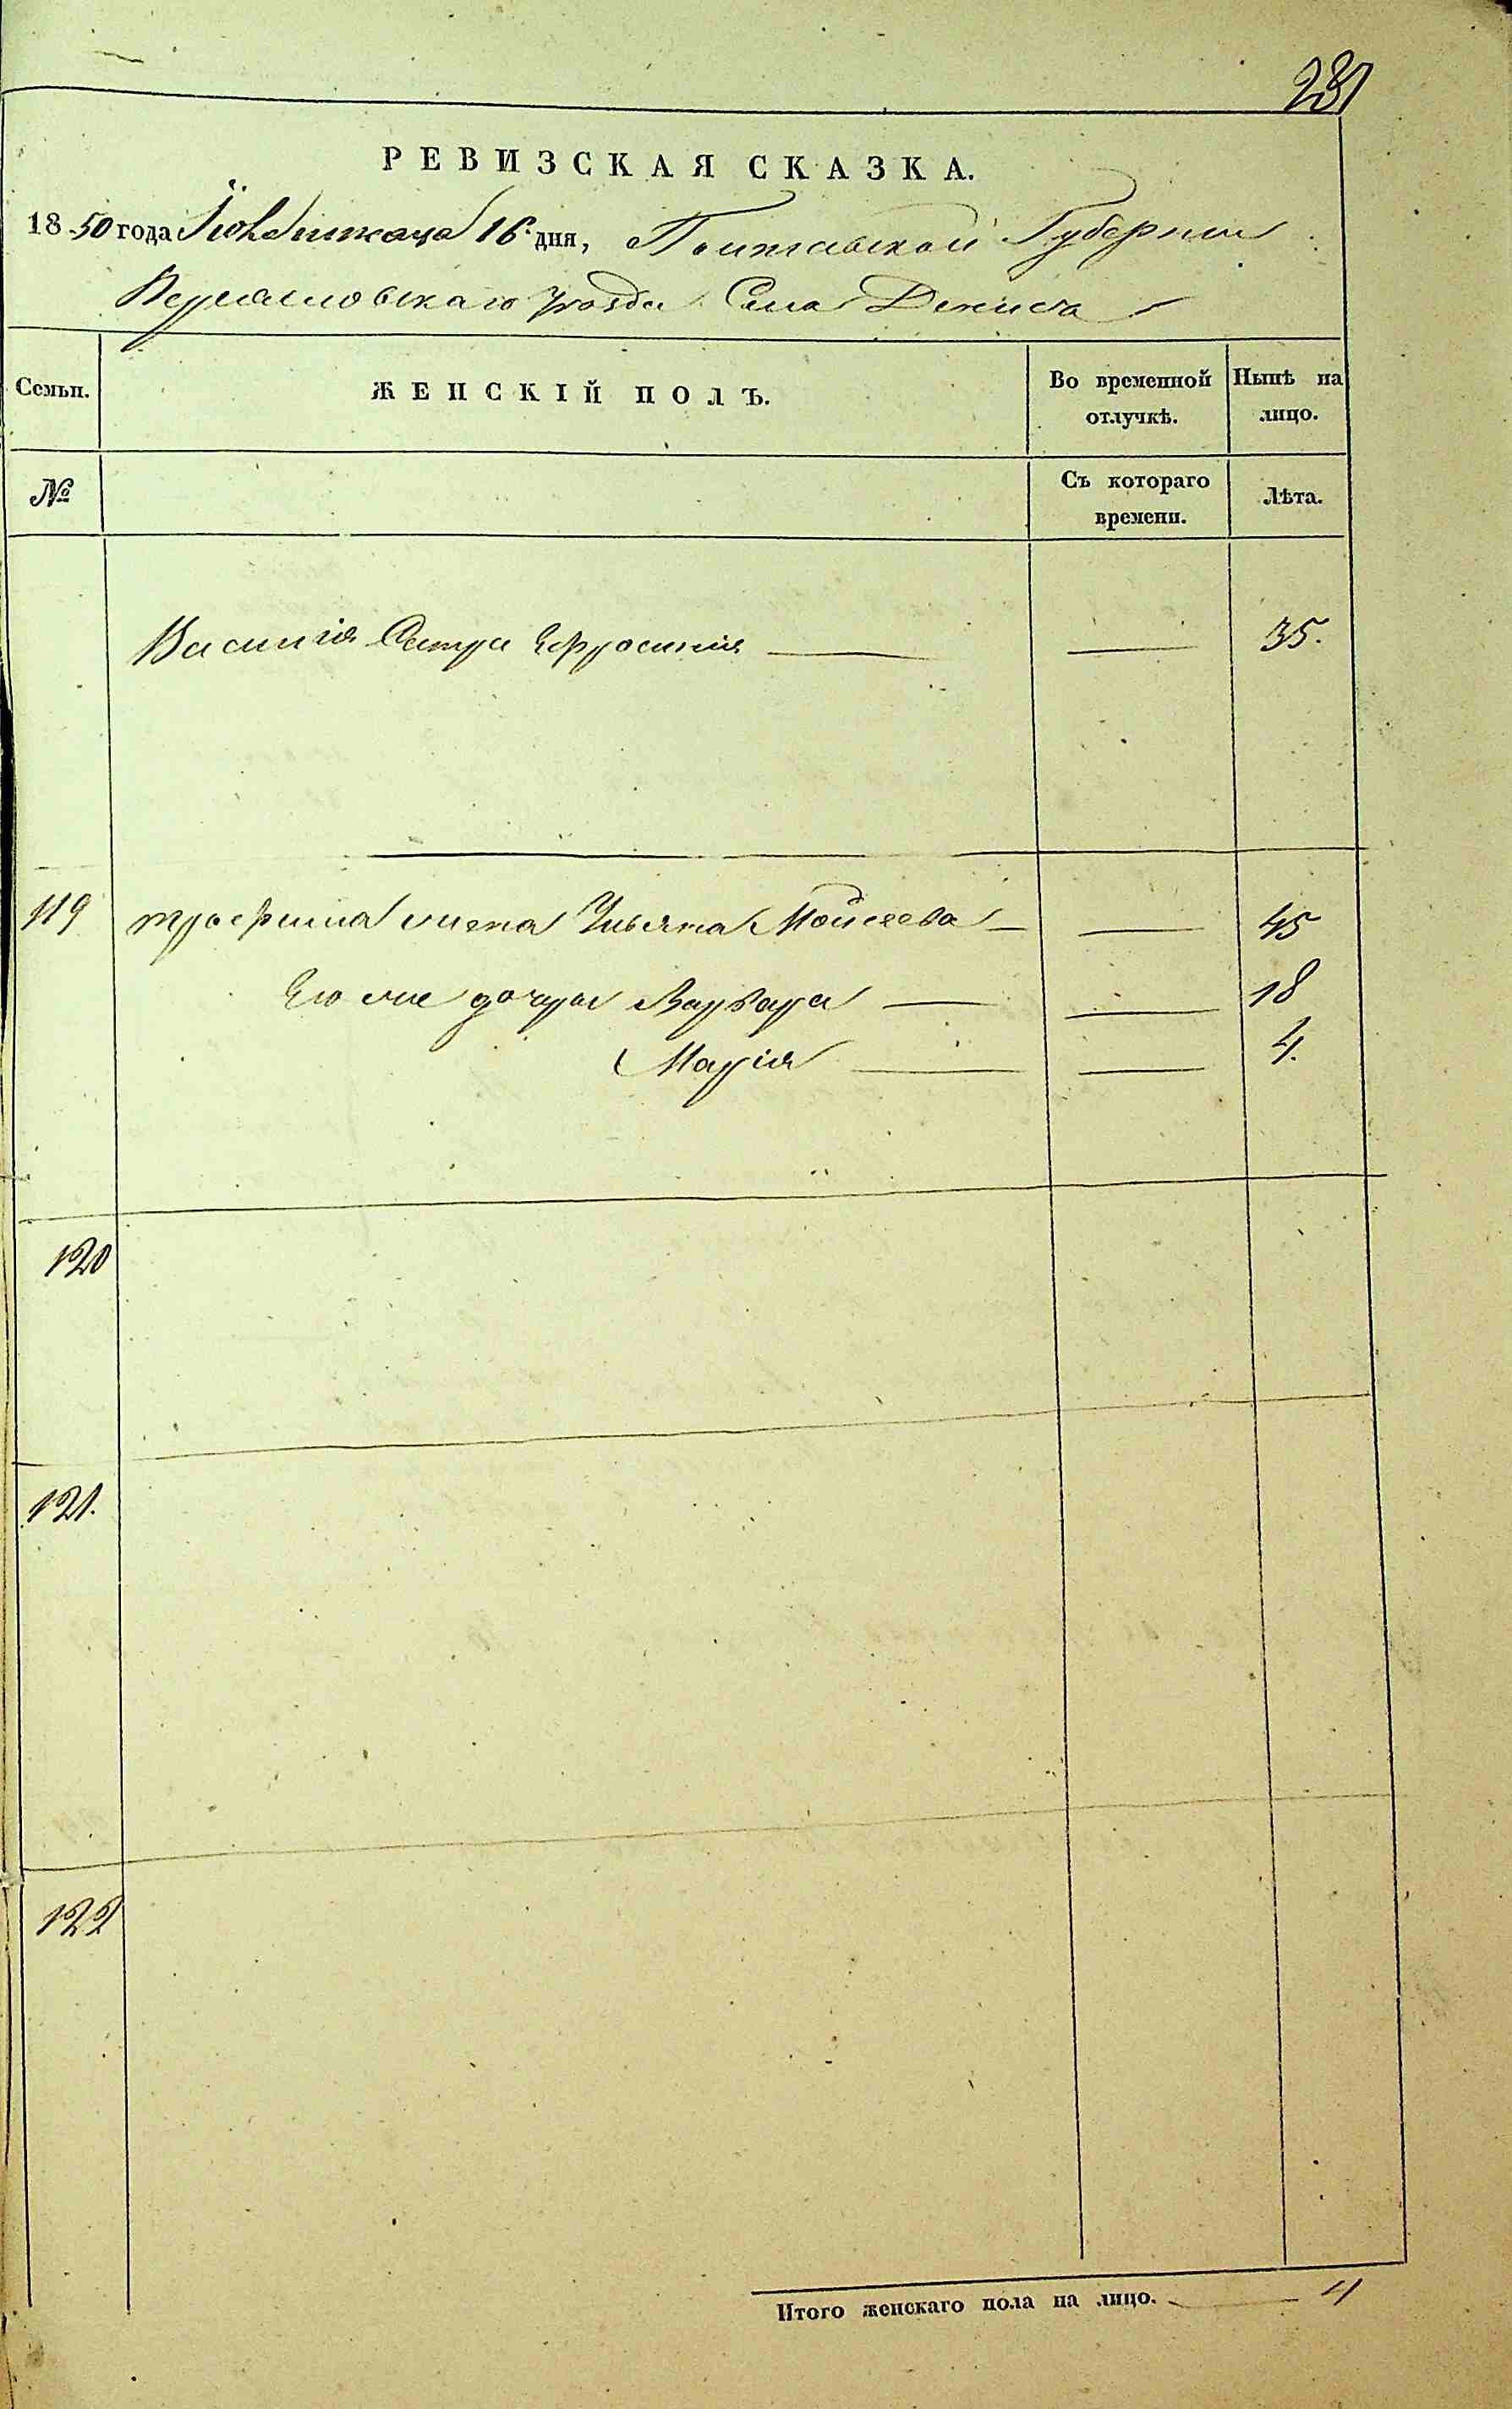 281
РЕВИЗСКАЯ СКАЗКА.
1850 года 16 дня, Полтавской Губернии
Переяславскаго уезда Села Дениса
Семьи.
ЖЕНСКІЙ ПОЛЪ.
Во временной отлучкѣ.
Нынѣ на лицо.
№
Съ котораго времени.
Лѣта.
Василія Сестра Ефросинія — — 35.
119 трофима жена Ульяна Моисеева — — 45
Его же дочери Варвара — — 18
Марія — — 4.
120
121.
122
Итого женскаго пола на лицо. — 4